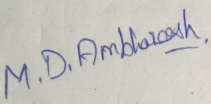 M.D. Ambhareesh.